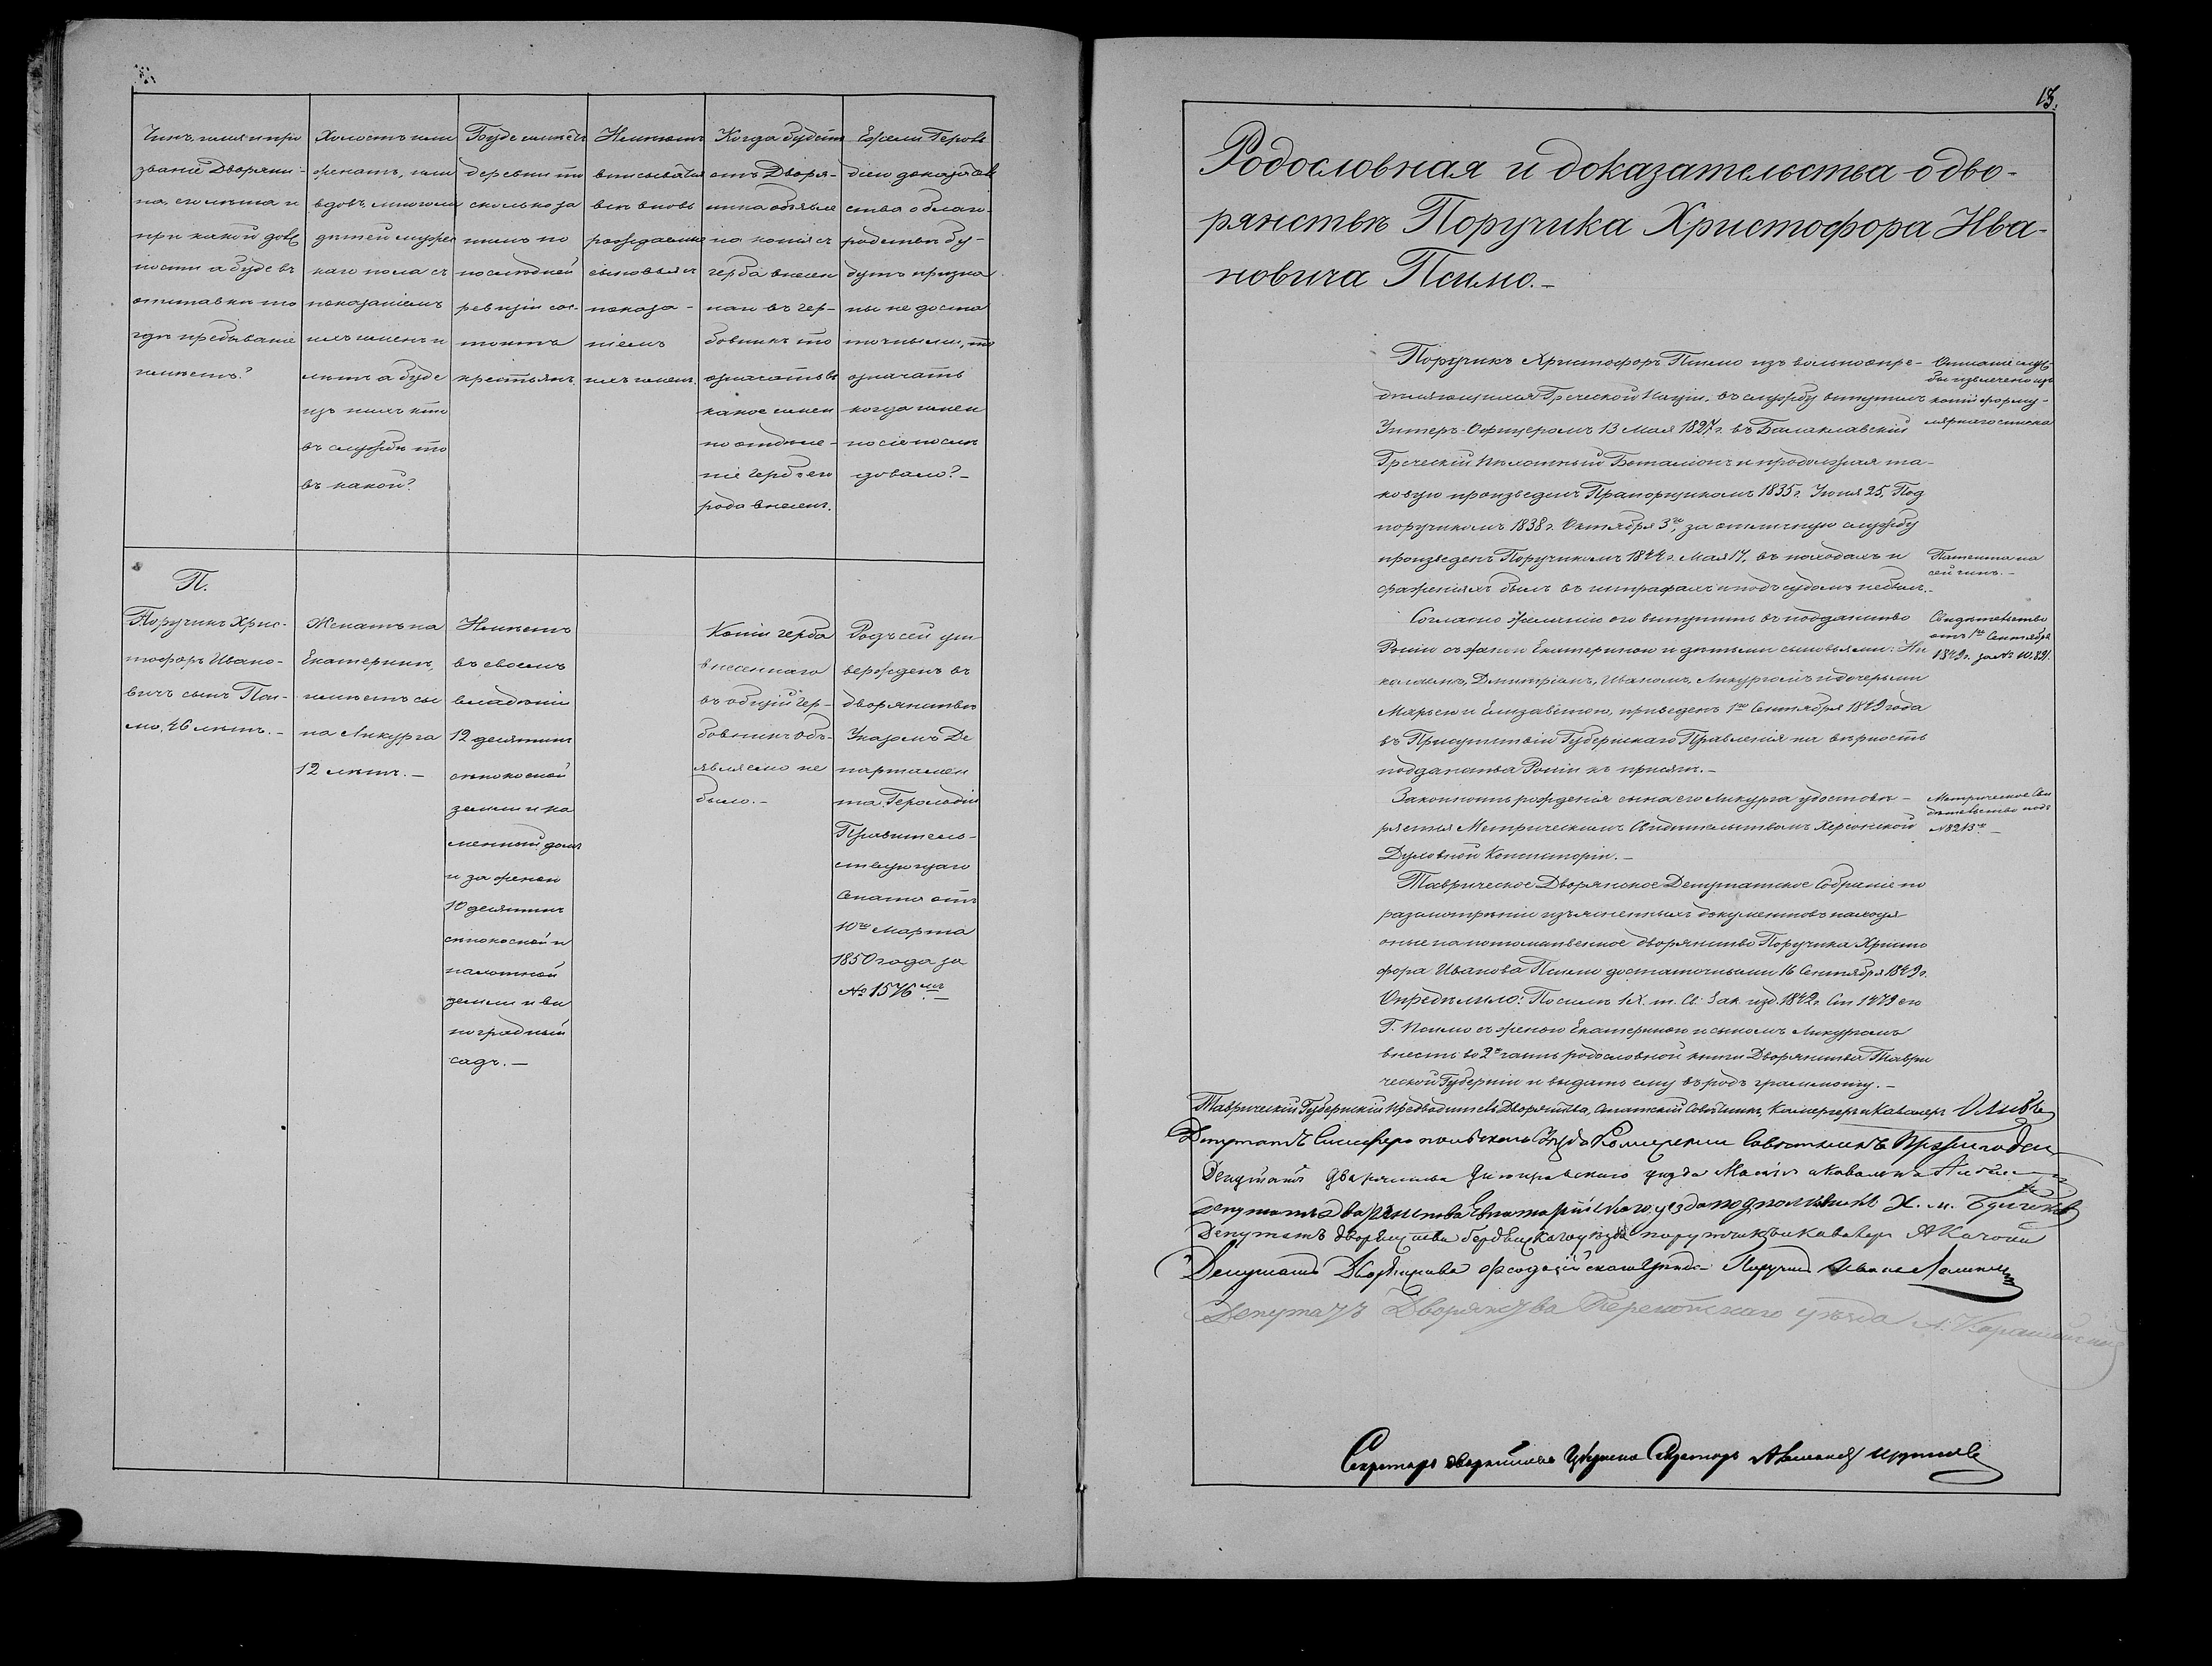 Чинъ, имя и про
званіе Дворяни-
на, его лѣта и
при какой долж
ности а буде въ
отставкѣ то
гдѣ пребываніе
имѣетъ?
Холостъ или
женатъ, или
вдовъ, многоли
дѣтей мужес
каго пола съ
показаніемъ
ихъ именъ и
лѣтъ а буде
изъ нихъ кто
въ службѣ то
въ какой?
Буде имѣетъ
деревни то
сколько за
нимъ по
послѣдней
ревизіи сос-
тоитъ
крестьянъ.
вписываться
всѣ вновь
рождаемые
сыновья съ
показа-
ніемъ
ихъ именъ.
Когда будетъ
отъ Дворя-
нина объявле
на копія съ
герба внесен
наго въ гер-
бовникъ то
означать въ
какое имен
но отдѣле-
ніе гербъ его
рода внесенъ.
Ежели Героль
діею доказатель
ства о благо-
родствѣ бу-
дутъ призна
ны не доста
точными, то
означать
когда имен
но сіе послѣ
довало? -
П.
Поручикъ Хрис-
тофоръ Ивано-
вичъ сынъ Пси-
мо, 46 лѣтъ. -
Женатъ на
Екатеринѣ,
имѣетъ сы
на Ликурга
12 лѣтъ. -
Имѣетъ
въ своемъ
владѣніи
12 десятинъ
сѣнокосной
земли и ка
менный домъ
и за женой
10 десятинъ
сѣнокосной и
пахотной
земли и ви
ноградный
садъ. -
Копіи герба
внесеннаго
въ общій гер-
бовникъ объ-
явлено не
было. -
Родъ сей ут
вержденъ въ
дворянствѣ
Указомъ Де
партамен
та Герольдіи
Правитель-
ствующаго
Сената отъ
10го Марта
1850 года за
№ 1576мъ. -
13.
Родословная и доказательства о дво-
рянствѣ Поручика Христофора Ива-
новича Псимо. -
Поручикъ Христофоръ Псимо изъ вольноопре-
дѣляющихся Греческой Націи, въ службу вступилъ
Унтеръ-Офицеромъ 13 Мая 1827 г. въ Балаклавскій
Греческій Пѣхотный Баталіонъ и продолжая та-
ковую произведенъ Прапорщикомъ 1835 г. Іюня 25, Под
поручикомъ 1838 г. Октября 3го, за отличную службу
произведенъ Поручикомъ 1844 г. Мая 17, въ походахъ и
сраженіяхъ былъ въ штрафахъ и подъ судомъ небылъ. -
Описаніе служ
бы извлечено изъ
копіи форму-
лярнаго списка
Патентъ на
сей чинъ. -
Согласно желанію его вступить въ подданство
Россіи съ женою Екатериною и дѣтьми сыновьями: Ни
колаемъ, Дмитріемъ, Иваномъ, Ликургомъ и дочерьми
Марьею и Елизаветою, приведенъ 1го Сентября 1849 года
въ Присутствіи Губернскаго Правленія на вѣрность
подданства Россіи къ присягѣ. -
Свидѣтельство
отъ 1го Сентября
1849 г. за № 10,891.
Законность рожденія сына его Ликурга удостовѣ-
ряется Метрическимъ Свидѣтельствомъ Херсонской
Духовной Консисторіи. -
Метрическое Сви
дѣтельство подъ
№ 8213м. -
Таврическое Дворянское Депутатское Собраніе по
разсмотрѣніи изъясненныхъ документовъ находя
оные на потомственное дворянство Поручика Христо
фора Иванова Псимо достаточными 16 Сентября 1849 г.
Опредѣлило: По силѣ IX. т. Св. Зак. изд. 1842 г. Ст 1479 его
Г. Псимо съ женою Екатериною и сыномъ Ликургомъ
внести во 2ю часть родословной книги Дворянства Таври
ческой Губерніи и выдать ему въ родъ грамоту. -
Таврическій Губернскій Предводитель Дворянства, Статскій Совѣтникъ, Камергеръ и Кавалеръ Оливъ
Депутатъ Симферопольскаго Уѣзда Совѣтникъ
Депутатъ Дворянства уѣзда
Депутатъ дворянства Евпаторійскаго уезда подполковникъ
Депутатъ дворянства Бердянскаго уѣзда поручикъ и кавалеръ
Депутатъ Дворянства Феодосійскаго Уѣзда Поручикъ
Депутатъ Дворянства Перекопскаго уѣзда
Секретарь дворянства Губернскій Секретарь